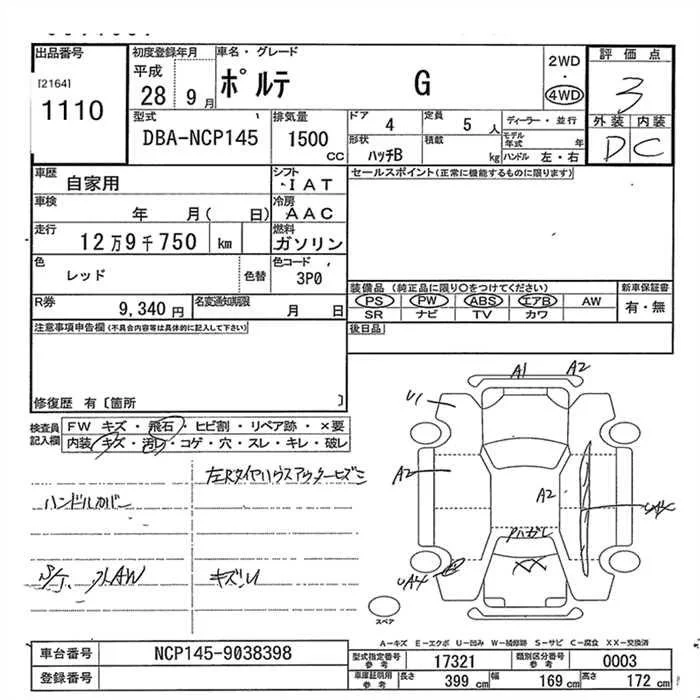 出品番号 初度登録年月 車名・グレード 評価点
[2164] 平成 ポルテ G 2WD ・ 4WD 3
1110 28 9月
型式 排気量 ドア 4 定員 5人 ディーラー・並行 外装 内装
DBA-NCP145 1500 CC 形状 ハッチB 積載 kg モデル年式 年 D C
ハンドル 左・右
車歴 自家用 シフト IAT セールスポイント(正常に機能するものに限ります)
車検 年 月( 日) 冷房 AAC
走行 12万9千750 km 燃料 ガソリン
色 レッド 色替 色コード 3P0
装備品 (純正品に限り○をつけてください) 新車保証書
R券 9,340円 名変通知期限 月 日 PS PW ABS エアB AW 有・無
SR ナビ TV カワ
注意事項申告欄(不具合内容等は具体的に記入して下さい) 後日品
修復歴 有〔箇所 〕
検査員記入欄 FW キズ・飛石・ヒビ割・リペア跡・×要
内装・キズ・汚レ・コゲ・穴・スレ・キレ・破レ
A1 A2
U1
左Rタイヤハウスアウターヒズミ
ハンドルカバー
A2
A2
ハガレ
キズ
XX
UA4
スペア
A－キズ E－エクボ U－凹み W－補修跡 S－サビ C－腐食 XX－交換済
車台番号 NCP145-9038398 型式指定番号 参考 17321 類別区分番号 参考 0003
登録番号 車庫証明用 参考 長さ 399 cm 幅 169 cm 高さ 172 cm